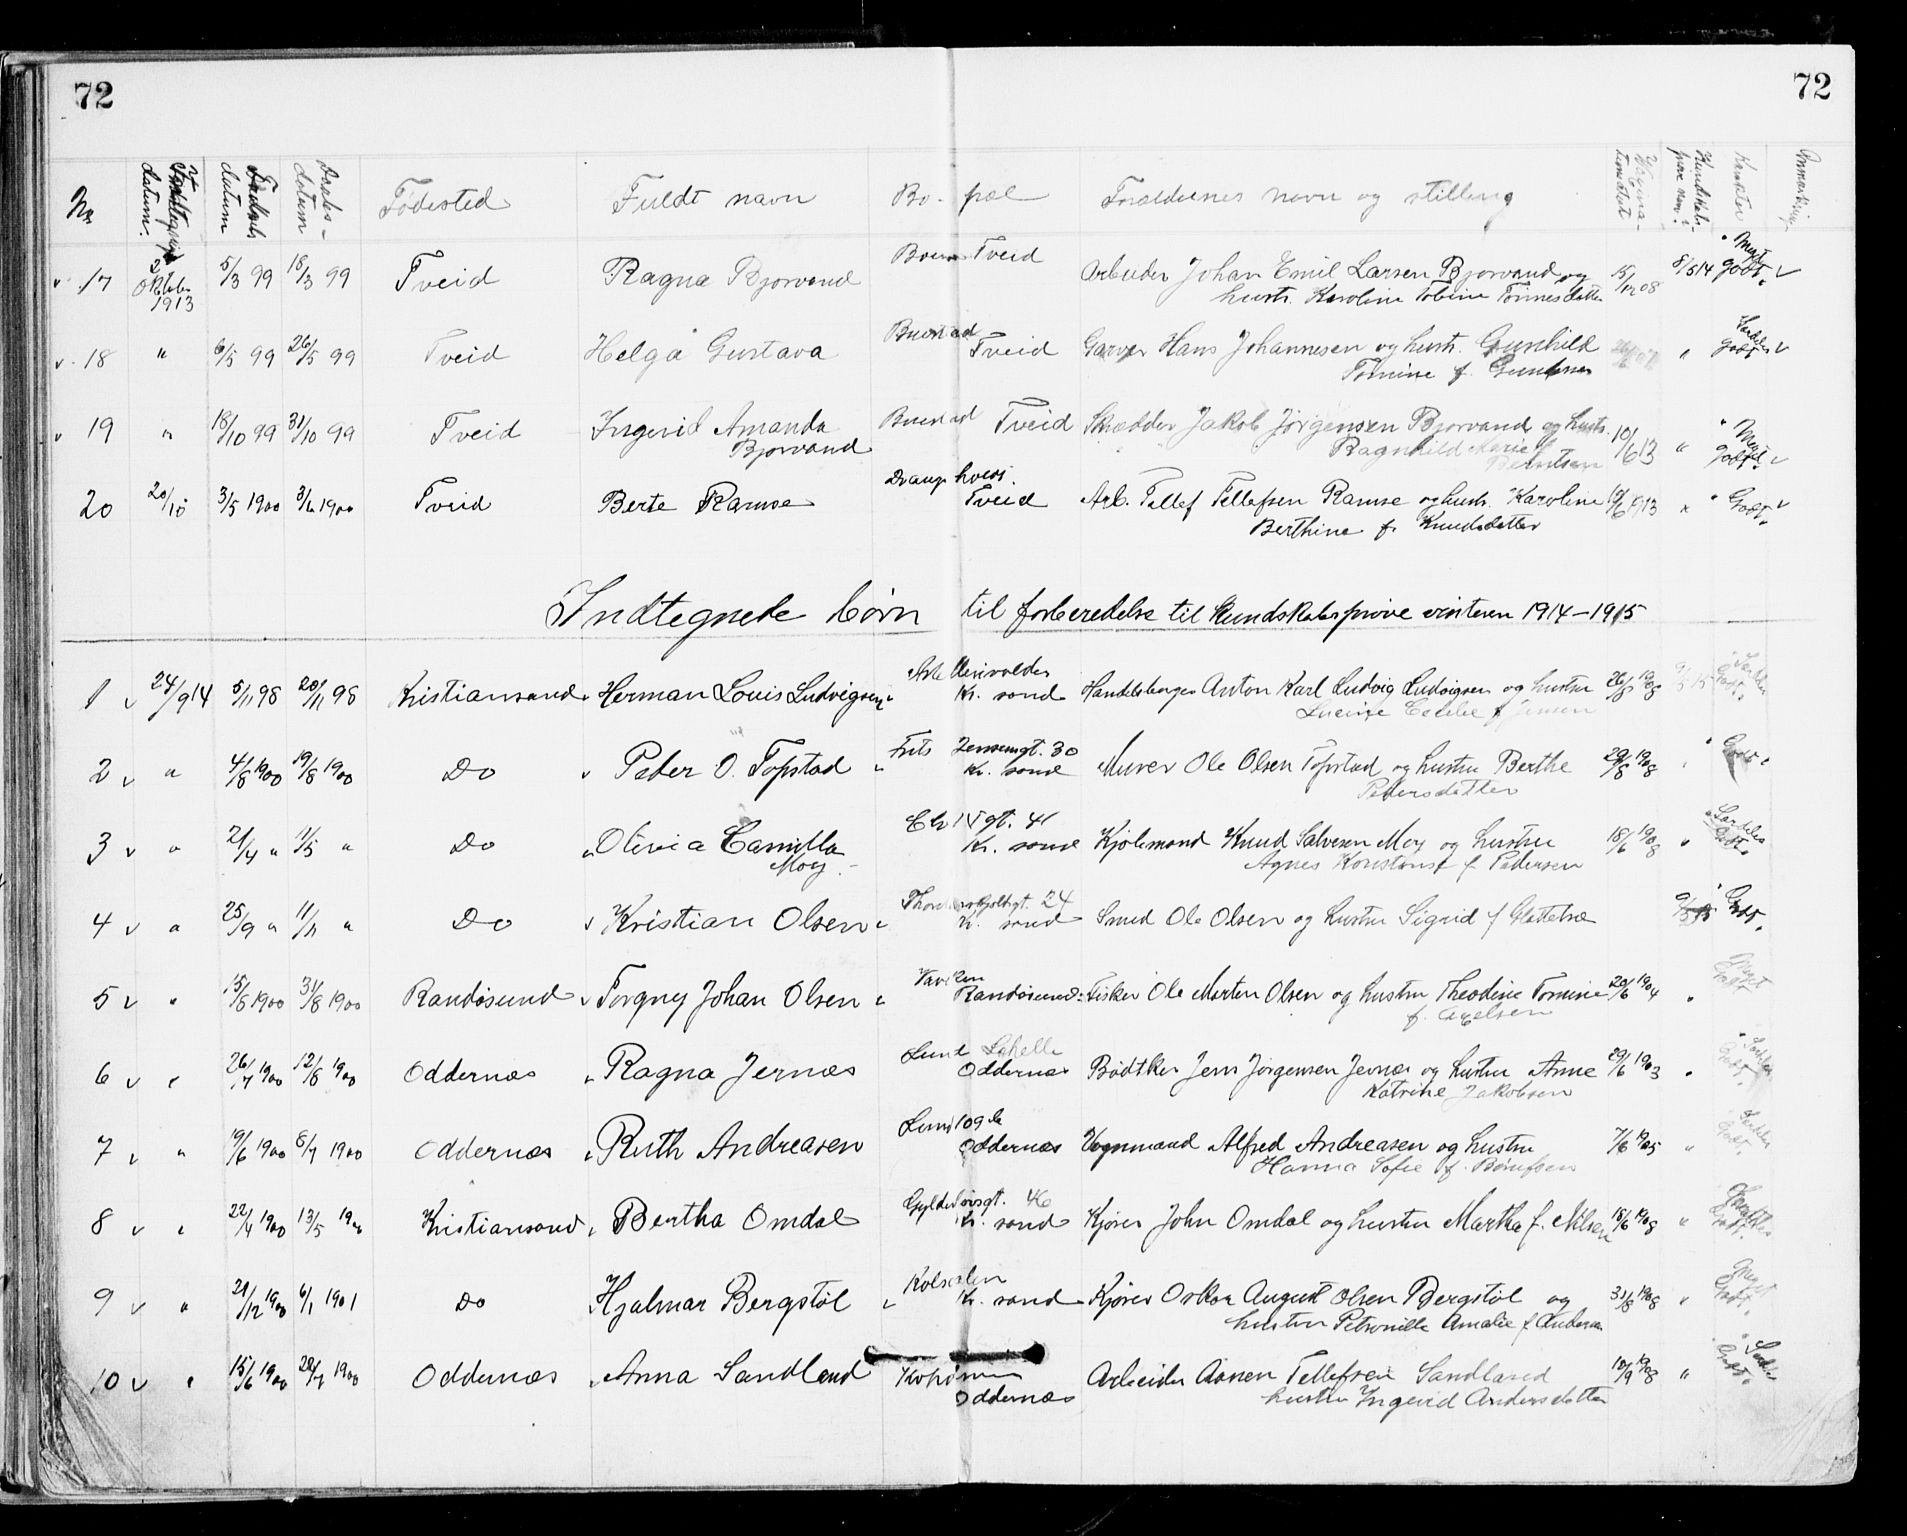 72 72
No. Indtegnings datum. Fødsels datum Daabs- datum Fødested Fuldt navn Bo- pæl Forældrenes navn og stilling Vaccina- tions dat. Kundskabs- prøve Karakter Anmærkning
v. 17 2 Oktober 1913 5/3 99 18/3 99 Tveid Ragna Bjorvand Boen Tveid Arbeider Johan Emil Larsen Bjorvand og 15/12 08 8/5 14 " Meget godt. v
hustr. Karoline Tobine Tønnesdatter
v. 18 " 6/5 99 26/5 99 Tveid Helga Gustava Buestad Tveid Garver Hans Johannesen og hustr. Gunhild " Særdeles godt v
Tomine f.
v 19 " 18/10 99 31/10 99 Tveid Ingerid Amanda Buestad Tveid Skrædder Jakob Jörgensen Bjorvand og hustr. 10/6 13 " " Meget godt. v
Bjorvand Ragnhild Marie f
Berntsen
20 20/10 3/5 1900 3/6 1900 Tveid Berte Ramse Drangsholt Tveid Arb. Tellef Tellefsen Ramse og hustr. Karoline 10/6 1913 " " Godt. v
Berthine f. Knudsdatter
Indtegnede børn til forberedelse til kundskabsprøve vinteren 1914–1915
1 v 24/9 14 5/11 98 20/11 98 Kristiansand Herman Louis Ludvigsen Kr. sand Handelsborger Anton Karl Ludvig Ludvigsen og hustru 26/8 1908 9/5 15 " Særdeles Godt.
Lucine Cecilie f Jensen
2 v " 4/8 1900 19/8 1900 Do Peder O. Topstad Frits Jensensgt. 30 Kr. sand Murer Ole Olsen Topstad og hustru Berthe 29/8 1908 " " Godt.
Pedersdatter
3 v " 21/4 " 1/5 " Do Olivia Camilla Chr IV gt. 41 Kr. sand Kjølemand Knud Salvesen Moy og hustru 18/6 1908 " " Særdeles Godt.
Moy Agnes Konstanse f Pedersen
4 v " 25/9 " 11/11 " Do Kristian Olsen Thordenskjoldsgt. 24 Kr. sand Smed Ole Olsen og hustru Sigrid f Glattetræ 9/5 15 " Godt.
5 v " 15/8 1900 31/8 1900 Randøsund Torgny Johan Olsen Randøsund Fisker Ole Morten Olsen og hustru Theodine Tomine 20/6 1904 " Meget Godt
f. Axelsen
6 v " 26/7 1900 12/8 1900 Oddernæs Ragna Jernæs Lund Lahelle Oddernæs Bødtker Jens Jørgensen Jernæs og hustru Anne 29/6 1903 " " Særdeles Godt.
Katrine Jakobsen
7 v " 19/6 1900 8/7 1900 Oddernæs Ruth Andreasen Lund 109 b Oddernæs Vognmand Alfred Andreasen og hustru 7/6 1905 " Særdeles Godt.
Hanna Sofie f.
8 v " 22/4 1900 13/5 1900 Kristiansand Bertha Omdal Gyldenløvsgt. 46 Kr. sand Kjører John Omdal og hustru Martha f. Nilsen 18/6 1908 " Særdeles Godt.
9 v " 21/12 1900 6/1 1901 Do Hjalmar Bergstøl Kolsdalen Kr. sand Kjører Oskar August Olsen Bergstøl og 31/8 1908 " Meget Godt.
hustru Petronille Amalie f Andersen
10 v " 15/6 1900 22/7 1900 Oddernæs Anna Sandland Oddernæs Arbeider Aanen Tellefsen Sandland 10/9 1908 " " Særdeles Godt.
hustru Ingerid Andersdatter